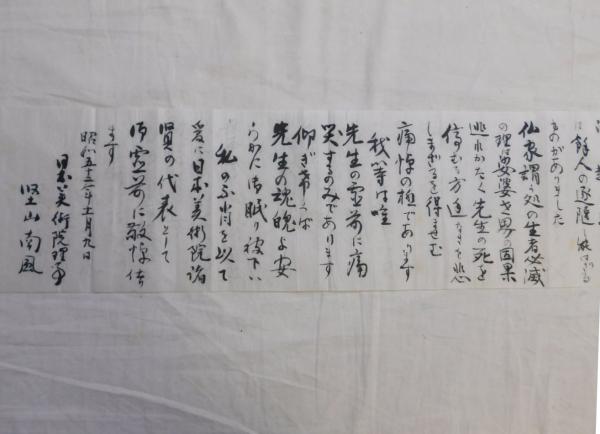 は餘人の追随し
ものがありました
仏家謂う処の生者必滅
の理 娑婆世界の因果
逃れがたく先生の死を
停むる方途なきを悲
しまざるを得ませむ
痛悼の極であります
我等は唯
先生の霊前に痛
哭するのみであります
仰ぎ希くば
先生の魂魄よ安
らかに御眠り被下い
私の不肖を以て
爰に日本美術院諸
賢の代表として
御霊前に敬悼仕
ます
昭和五十二年十一月九日
日本美術院理事
堅山南風